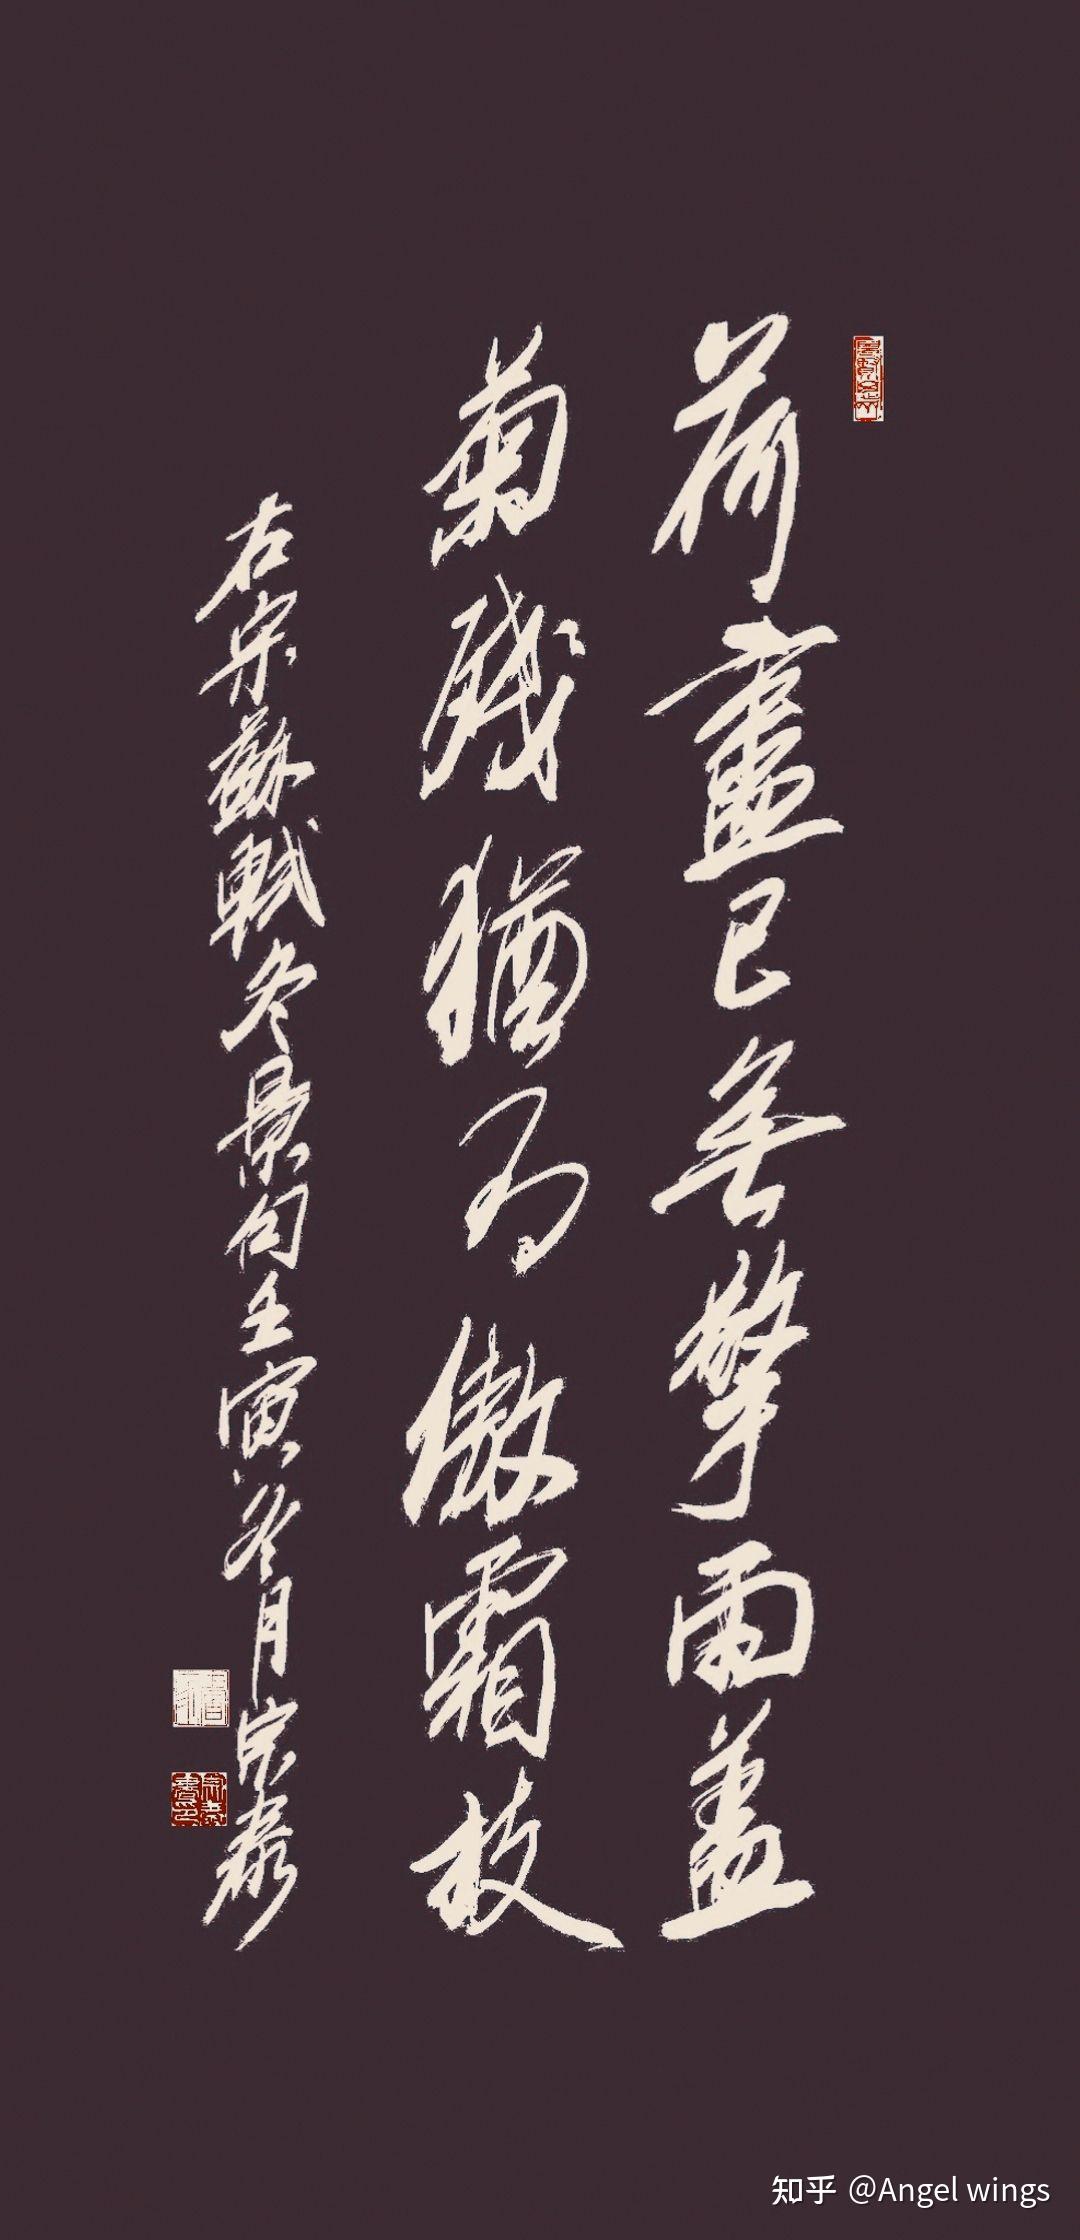 荷盡已無擎雨盖
菊殘猶有傲霜枝
右宋蘇軾冬景句壬寅冬月宗泰
知乎 @Angel wings